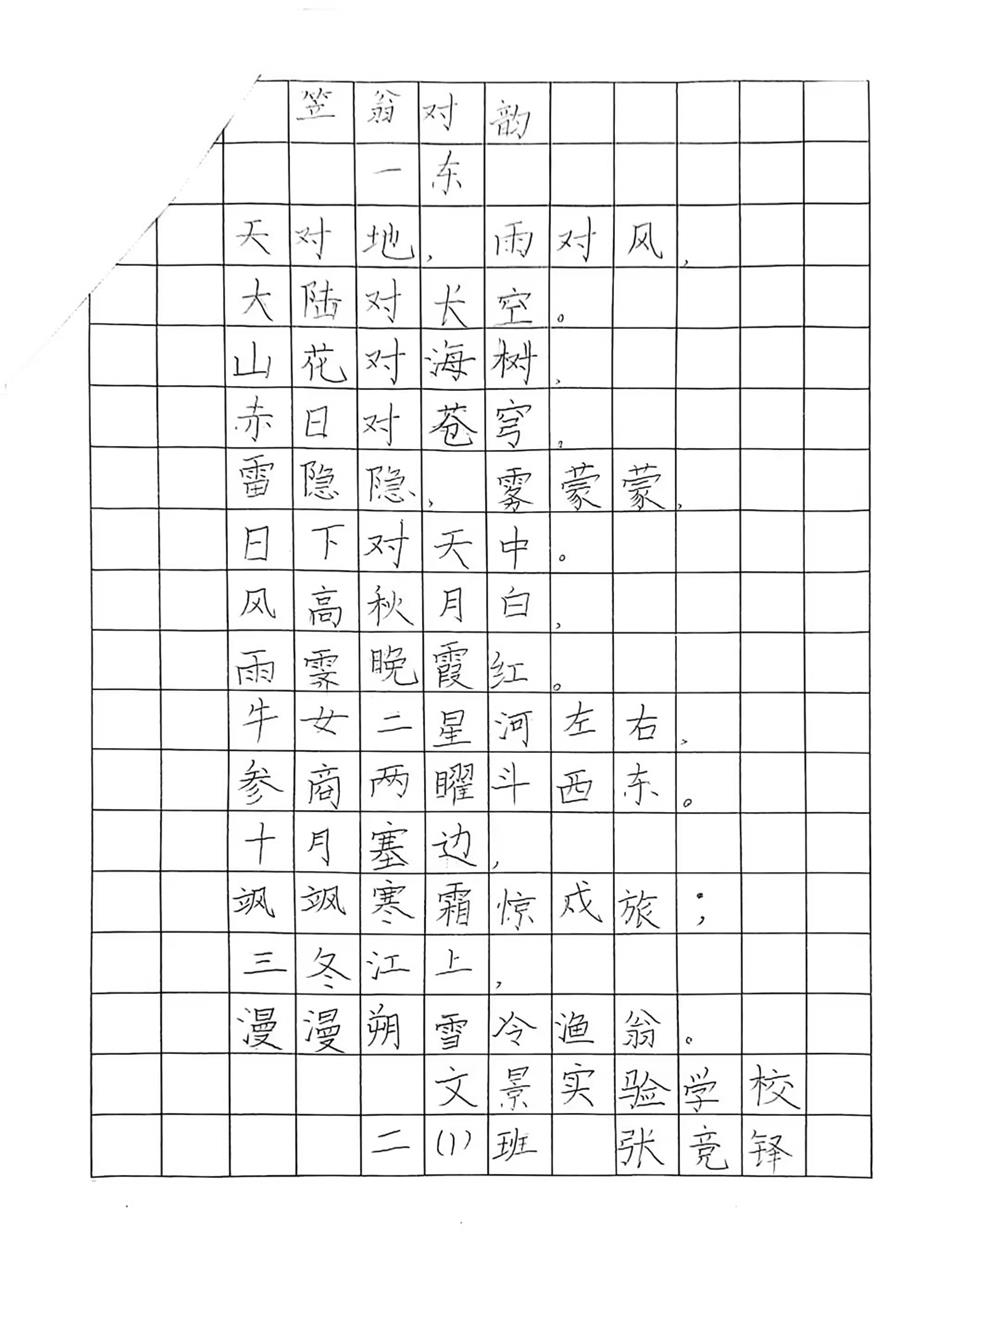 笠翁对韵
一东
天对地，雨对风，
大陆对长空。
山花对海树，
赤日对苍穹。
雷隐隐，雾蒙蒙，
日下对天中。
风高秋月白，
雨霁晚霞红。
牛女二星河左右，
参商两曜斗西东。
十月塞边，
飒飒寒霜惊戍旅；
三冬江上，
漫漫朔雪冷渔翁。
文景实验学校
二(1)班 张竞铎